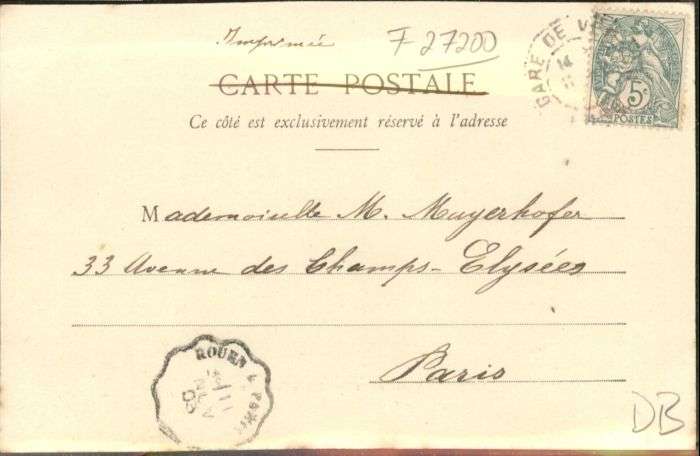 Imprimée F 27200
CARTE POSTALE
Ce côté est exclusivement réservé à l'adresse
GARE DE V
5c
POSTES
Mademoiselle M. Mayerhofer
33 Avenue des Champs-Elysées
Paris
ROUEN A PARIS
11
03
DB